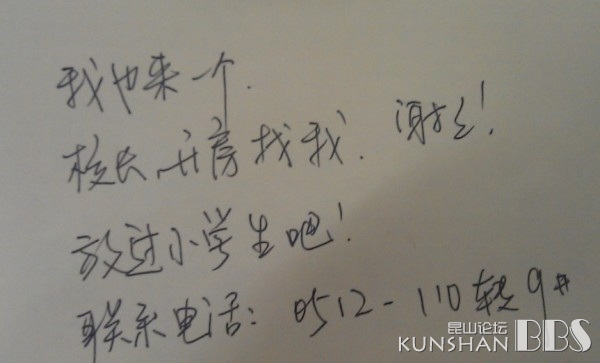 我也来一个.
校长,开房找我. 谢谢!
放过小学生吧!
联系电话: 0512-110转9#
昆山论坛
KUNSHAN BBS